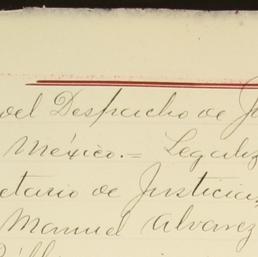 del Despacho de J
México.= Legaliz
etario de Justicia,
Manuel Alvarez